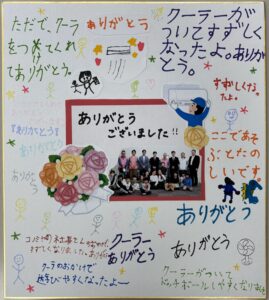 ただで、クーラ
をつけてくれ
てありがとう。
ありがとう
クーラーが
ついてすずしく
なったよ。ありが
とう。
すずしくなっ
たよ。
ありがとう
ございました!!
ここであそ
ぶとたの
しいです
ありがとう
ありがとう
ありがとう
クーラー
ありがとう
クーラのおかげで
あそびやすくなったよー
ありがとう
クーラーがついて
ドッチボールしやすくなり